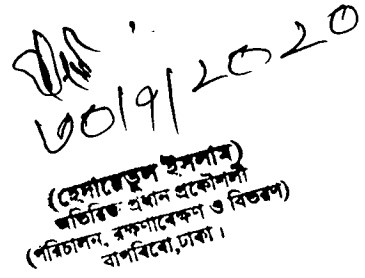 ৩০/৭/২০২০
(হেদায়েতুল ইসলাম)
অতিরিক্ত প্রধান প্রকৌশলী
(পরিচালন, রক্ষণাবেক্ষণ ও বিতরণ)
বাপবিবো, ঢাকা।